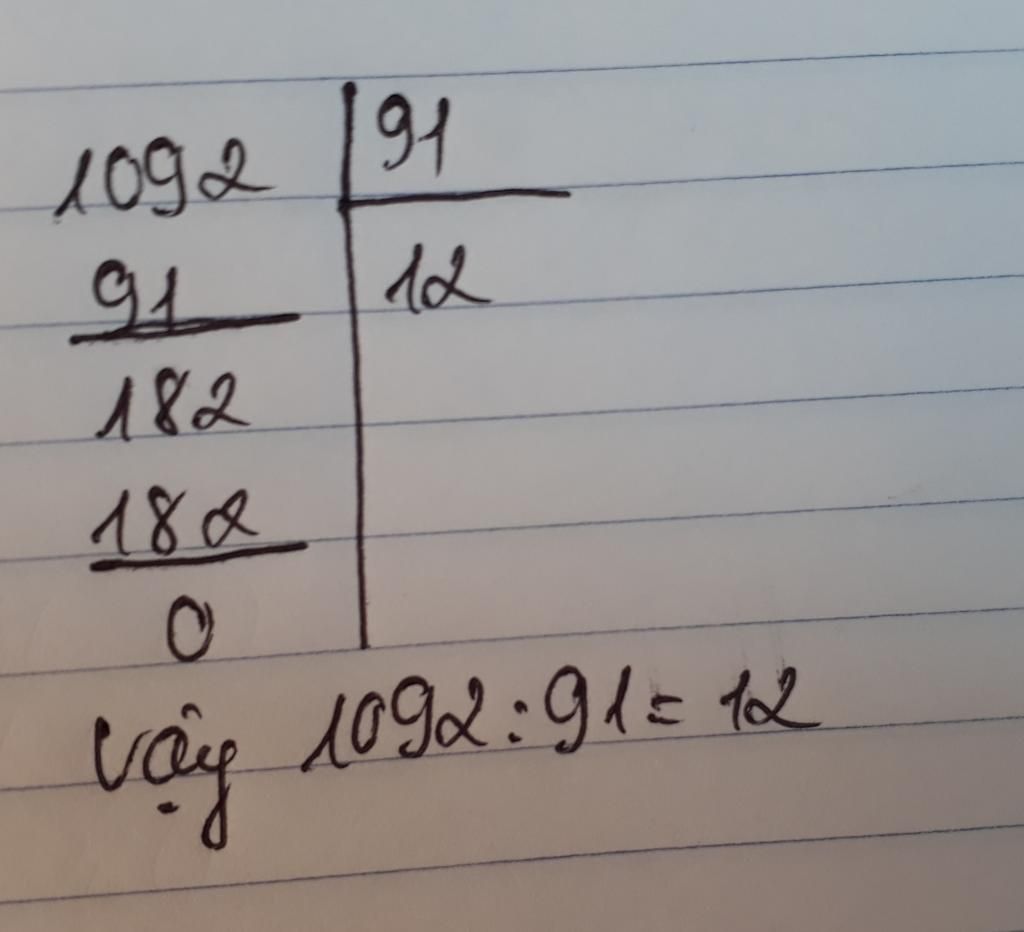 1092 91
91 12
182
182
0
Vậy 1092 : 91 = 12